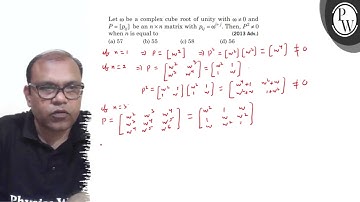 Let ω be a complex cube root of unity with ω ≠ 0 and
P = [pᵢⱼ] be an n × n matrix with pᵢⱼ = ωⁱ⁺ʲ. Then, P² ≠ 0
when n is equal to (2013 Adv.)
(a) 57 (b) 55 (c) 58 (d) 56
If n = 1 ⇒ P = [ω²] ⇒ P² = [ω²][ω²] = [ω⁴] ≠ 0
If n = 2 ⇒ P = [ω² ω³ ; ω³ ω⁴] = [ω² 1 ; 1 ω]
P² = [ω² 1 ; 1 ω] [ω² 1 ; 1 ω] = [ω⁴+1 ω²+ω ; ω²+ω 1+ω²] ≠ 0
If n = 3
P = [ω² ω³ ω⁴ ; ω³ ω⁴ ω⁵ ; ω⁴ ω⁵ ω⁶] = [ω² 1 ω ; 1 ω ω² ; ω ω² 1]